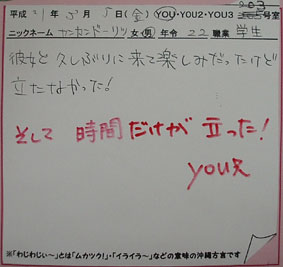 平成 21年 5月 5日(金) YOU・YOU2・YOU3 203号室
ニックネーム カンカンドーリツ 女・男 年令 22 職業 学生
彼女と久しぶりに来て楽しみだったけど
立たなかった!
そして 時間だけが 立った!
YOU兄
※「わじわじぃ~」とは「ムカツウ!」・「イライラ~」などの意味の沖縄方言です